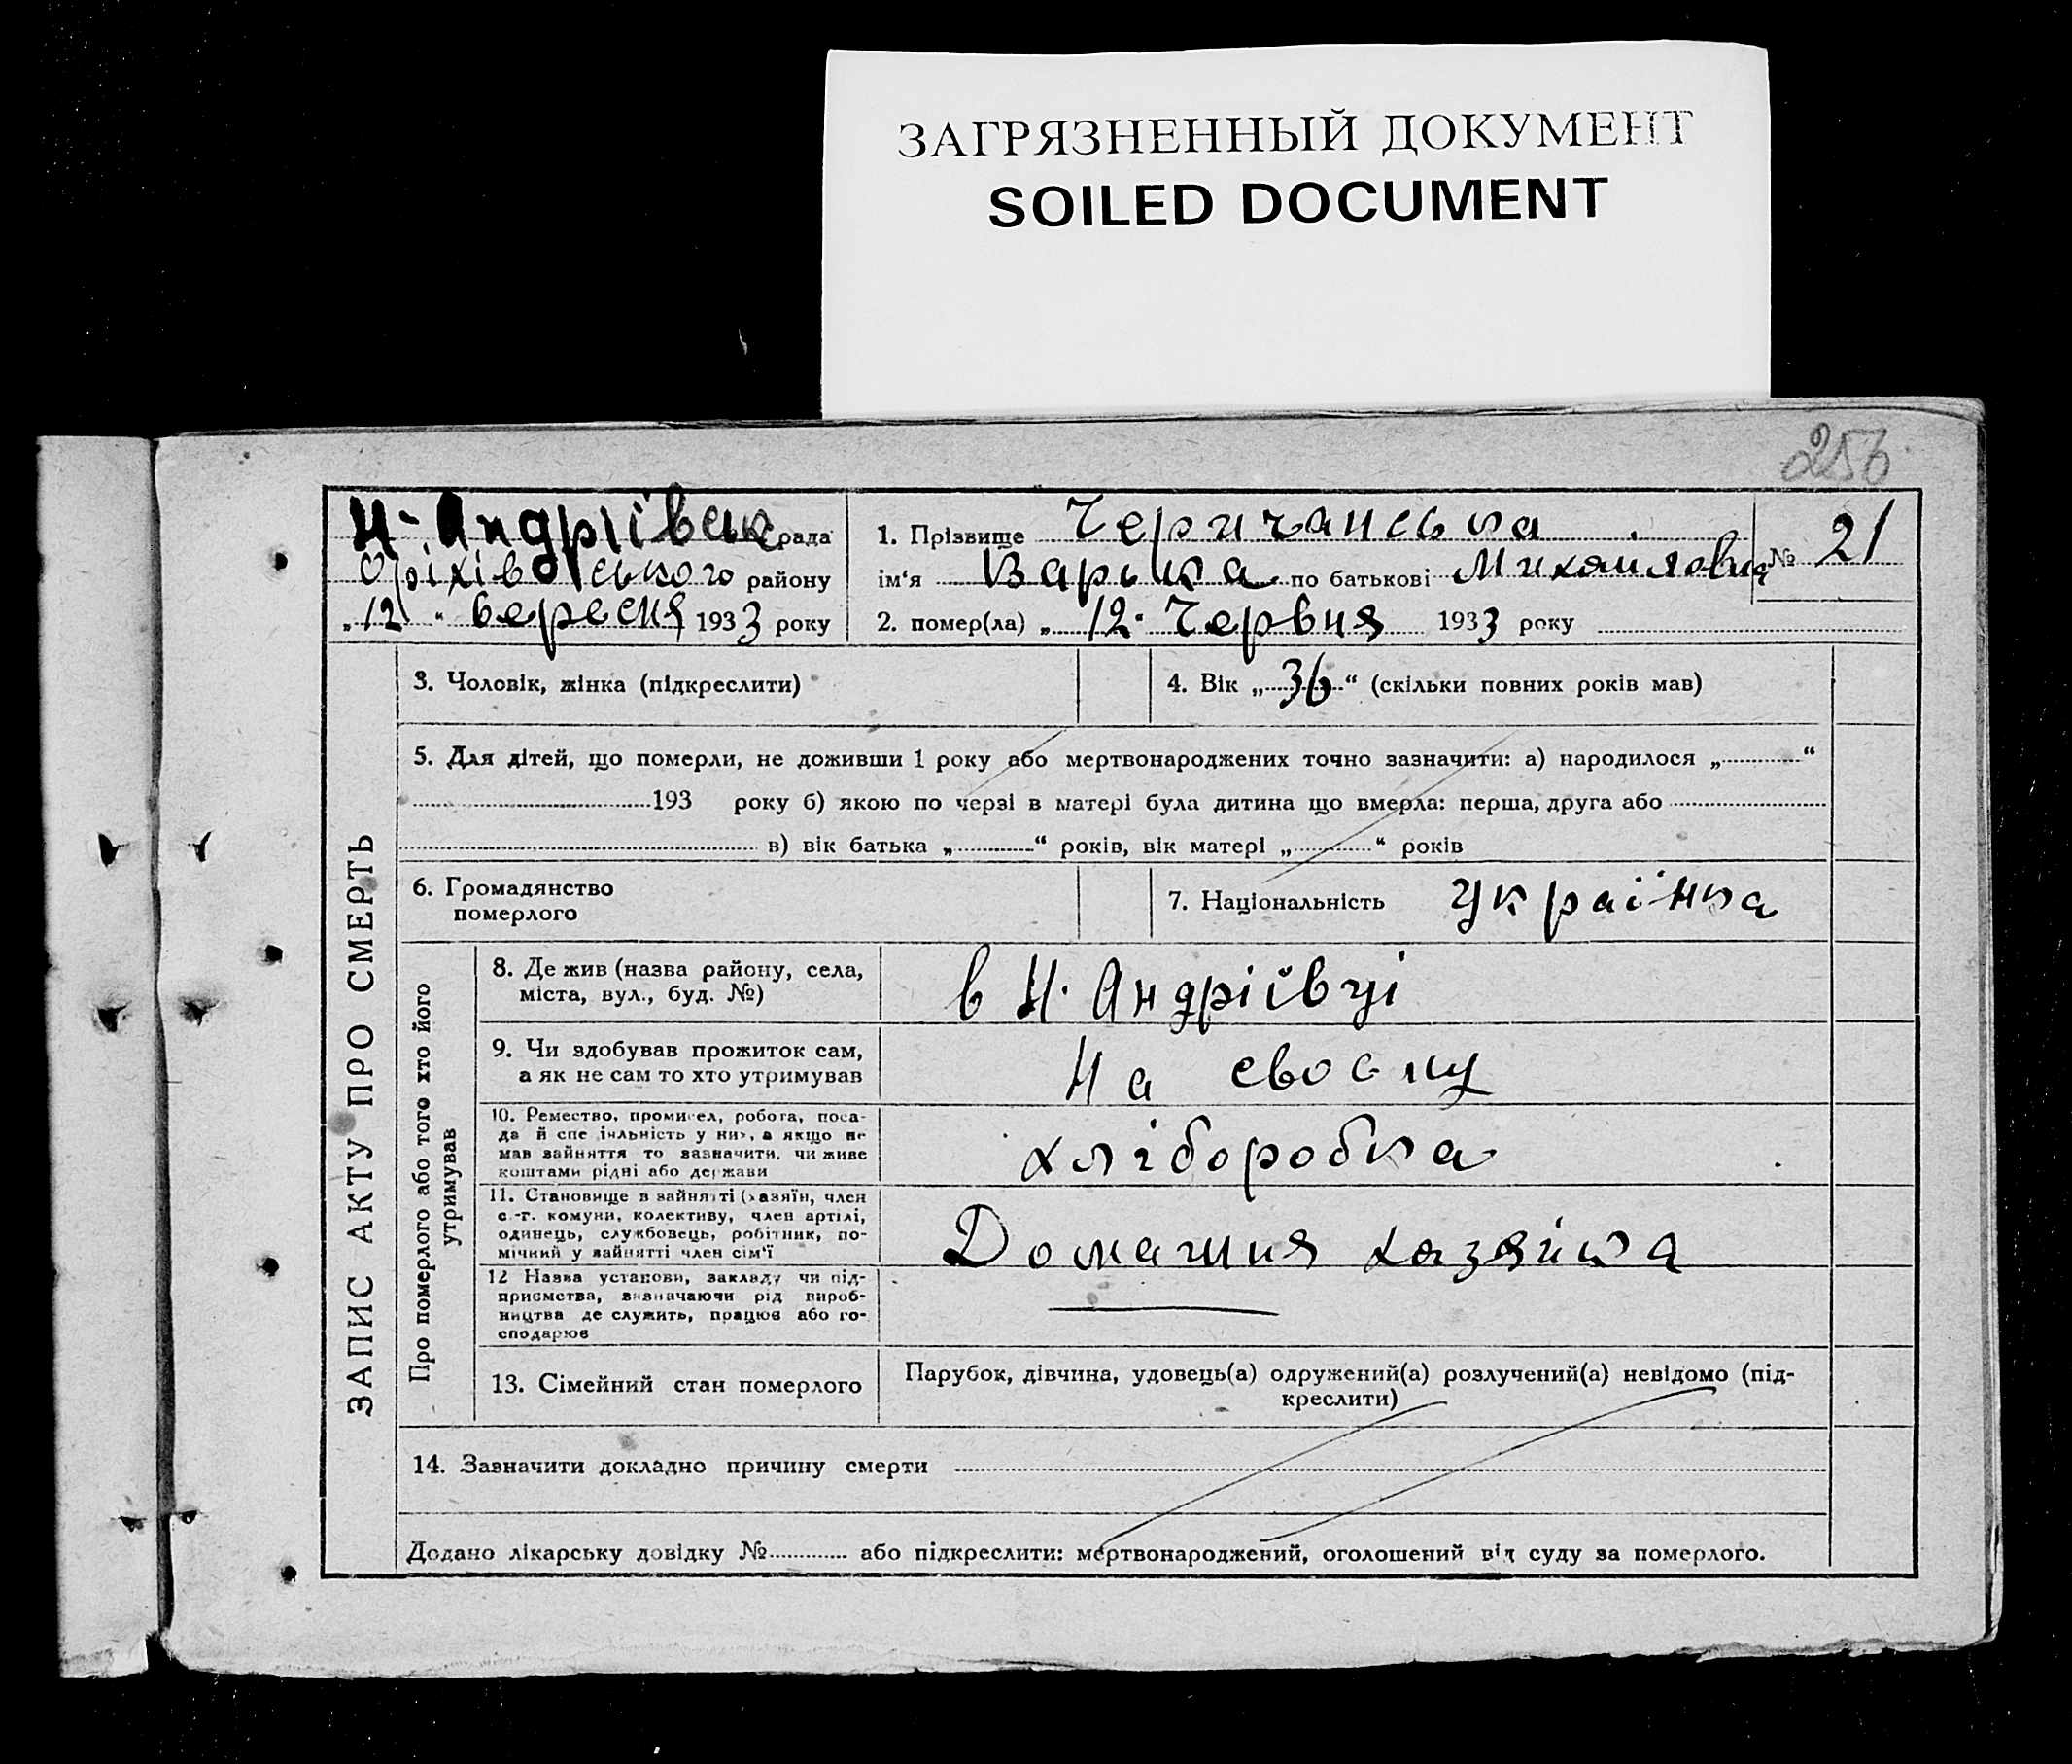 ЗАГРЯЗНЕННЫЙ ДОКУМЕНТ
SOILED DOCUMENT
256
Н-Андріївськ рада
Оріхівського району
„12" вересня 1933 року
1. Прізвище Черичанська
ім'я Варька по батькові Михайлівна
№ 21
2. помер(ла) „12. Червня 1933 року
ЗАПИС АКТУ ПРО СМЕРТЬ
3. Чоловік, жінка (підкреслити)
4. Вік „36" (скільки повних років мав)
5. Для дітей, що померли, не доживши 1 року або мертвонароджених точно зазначити: а) народилося „ "
193 року б) якою по черзі в матері була дитина що вмерла: перша, друга або
в) вік батька „ " років, вік матері „ " років
6. Громадянство
померлого
7. Національність Українка
Про померлого або того хто його
утримував
8. Де жив (назва району, села,
міста, вул., буд. №)
в Н. Андріївці
9. Чи здобував прожиток сам,
а як не сам то хто утримував
На своєму
10. Ремество, промисел, робота, поса-
да й спеціяльність у них, а якщо не
мав зайняття то зазначити, чи живе
коштами рідні або держави
хліборобка
11. Становище в зайнятті (хазяїн, член
с.-г. комуни, колективу, член артілі,
одинець, службовець, робітник, по-
мічний у зайнятті член сім'ї
Домашня хазяйка
12 Назва установи, закладу чи під-
приємства, зазначаючи рід вироб-
ництва де служить, працює або го-
сподарює
13. Сімейний стан померлого
Парубок, дівчина, удовець(а) одружений(а) розлучений(а) невідомо (під-
креслити)
14. Зазначити докладно причину смерти
Додано лікарську довідку № або підкреслити: мертвонароджений, оголошений від суду за померлого.